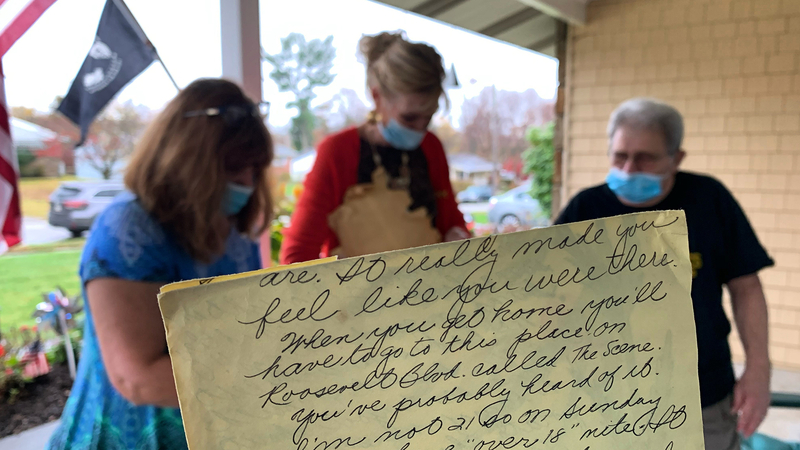 are. It really made you
feel like you were there.
When you get home you'll
have to go to this place on
Roosevelt Blvd. called The Scene.
You've probably heard of it.
I'm not 21 so on Sunday
"over 18" nite. It